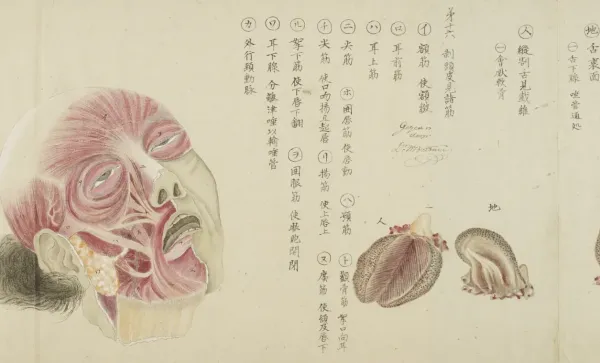 地 舌裏面
一 舌下腺 唾管通処
人 縦割舌見截離
一 會厭軟骨
第十六 剥頭皮見諸筋
イ 額筋 使額皺
ロ 耳前筋
ハ 耳上筋
ニ 尖筋 ホ 囲唇筋 使唇動 ヘ 頬筋 ト 顴骨筋 掣口向耳
尖筋 使口向揚起唇 リ 揚筋 使上唇上 ヌ 筋 使頬及唇下
ル 掣下筋 使下唇下翻 ヲ 囲眼筋 使眼胞開閉
ワ 耳下腺 分離津唾以輸唾管
カ 外行頸動脈
地
一
人